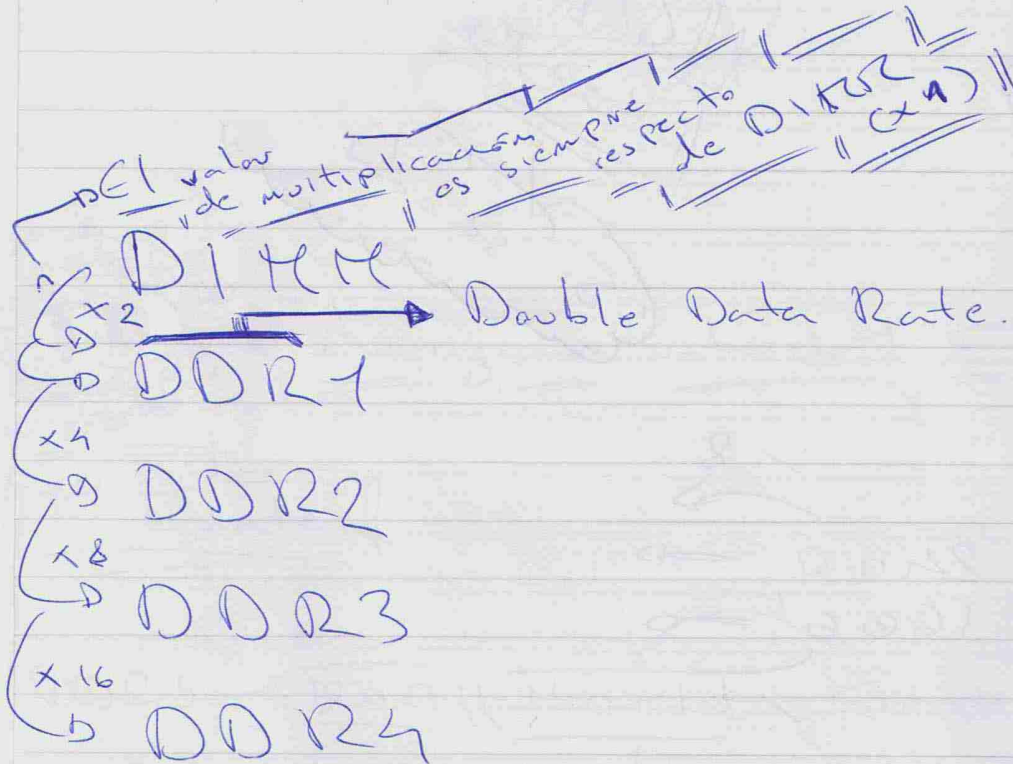 El valor
de multiplicación
es siempre
respecto
de DIMM
(x1)
DIMM
x2
Double Data Rate.
DDR1
x4
DDR2
x8
DDR3
x16
DDR4